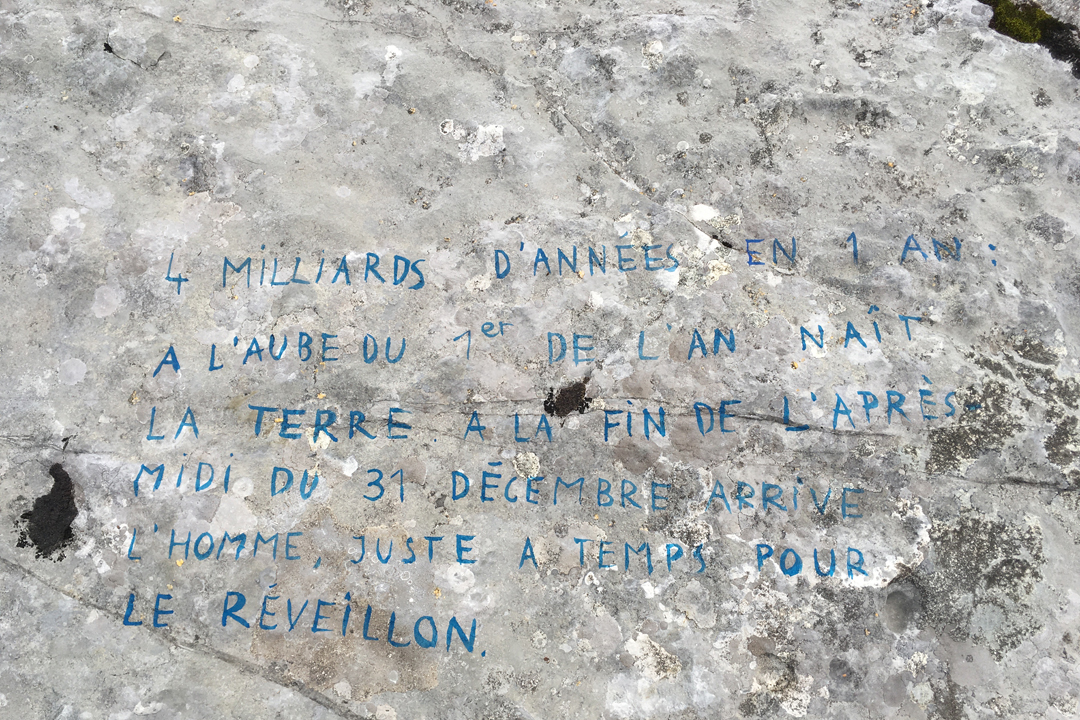 4 MILLIARDS D'ANNÉES EN 1 AN :
A L'AUBE DU 1er DE L'AN NAÎT
LA TERRE. A LA FIN DE L'APRÈS-
MIDI DU 31 DÉCEMBRE ARRIVE
L'HOMME, JUSTE A TEMPS POUR
LE RÉVEILLON.